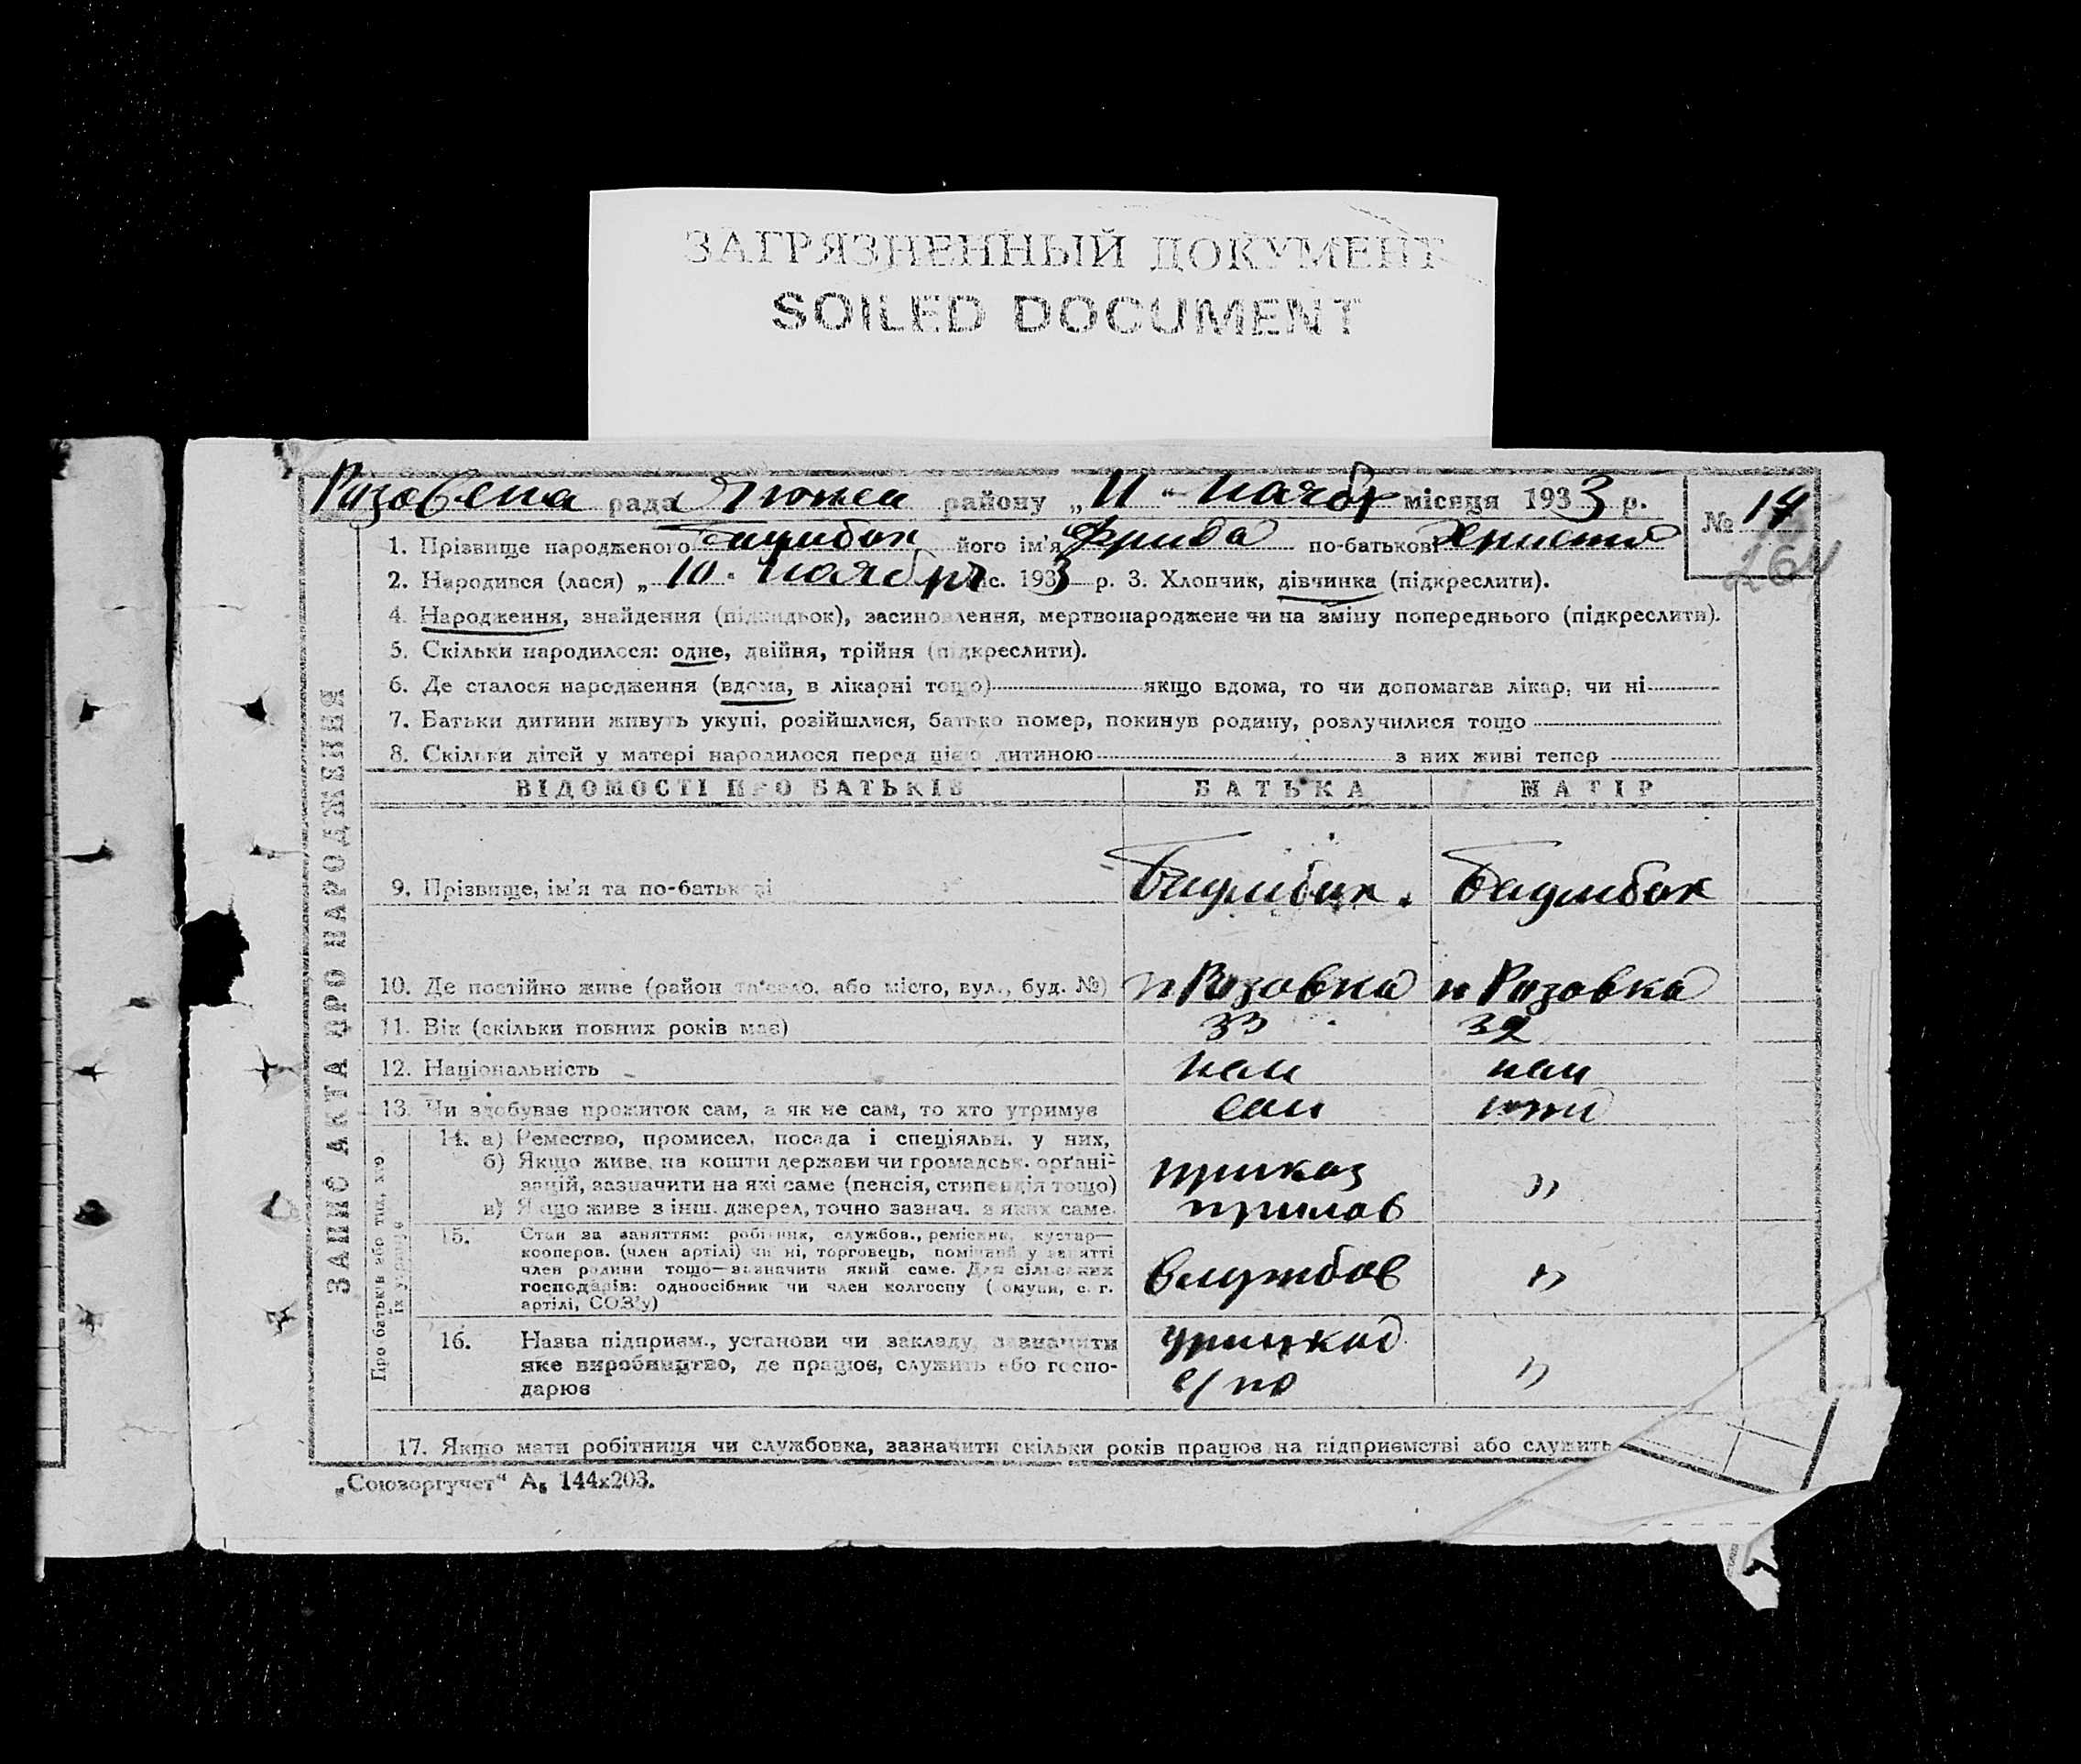 ЗАГРЯЗНЕННЫЙ ДОКУМЕНТ
SOILED DOCUMENT
рада району „11“ ноябр місяця 1933 р.
№ 14
264
1. Прізвище народженого Баумбах його ім'я Фрида по-батькові
2. Народився (лася) „10“ ноября міс. 1933 р. 3. Хлопчик, дівчинка (підкреслити).
4. Народження, знайдення (підкидьок), засиновлення, мертвонароджене чи на зміну попереднього (підкреслити).
5. Скільки народилося: одне, двійня, трійня (підкреслити).
6. Де сталося народження (вдома, в лікарні тощо) якщо вдома, то чи допомагав лікар, чи ні
7. Батьки дитини живуть укупі, розійшлися, батько помер, покинув родину, розлучилися тощо
8. Скільки дітей у матері народилося перед цією дитиною з них живі тепер
ЗАПИС АКТА ПРО НАРОДЖЕННЯ
ВІДОМОСТІ ПРО БАТЬКІВ БАТЬКА МАТІР
9. Прізвище, ім'я та по-батькові Баумбах. Баумбах
10. Де постійно живе (район та село, або місто, вул., буд. №) н Розовка н Розовка
11. Вік (скільки повних років має) 33 32
12. Національність нем нем
13. Чи здобуває прожиток сам, а як не сам, то хто утримує сам
Про батьків або тих, хто
їх утримує
14. а) Ремество, промисел, посада і спеціяльн. у них,
б) Якщо живе на кошти держави чи громадськ. органі-
зацій, зазначити на які саме (пенсія, стипендія тощо)
в) Якщо живе з інш. джерел, точно зазнач. з яких саме.
приказ
прилав
„
15. Стан за заняттям: робітник, службов., ремісник, кустар—
кооперов. (член артілі) чи ні, торговець, помічний у занятті
член родини тощо—зазначити який саме. Для сільських
господарів: одноосібник чи член колгоспу (комуни, с. г.
артілі, СОЗ'у)
службов
„
16. Назва підприєм., установи чи закладу, зазначити
яке виробництво, де працює, служить або госпо-
дарює
с/по
„
17. Якщо мати робітниця чи службовка, зазначити скільки років працює на підприємстві або служить
„Союзоргучет“ А₅ 144х203.